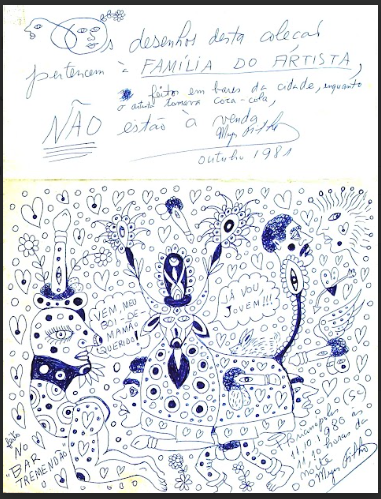 Os desenhos desta coleção
pertencem à FAMÍLIA DO ARTISTA,
feitos em bares da cidade, enquanto
o artista tomava coca-cola,
NÃO estão à venda
outubro 1981
VEM, MEU
BOI-DE-
MAMÃO
QUERIDO!
JÁ VOU,
JOVEM!!!
feito
NO
BAR
TREMENDÃO
(SC)
11.01.1986 às
11,30 horas da
noite